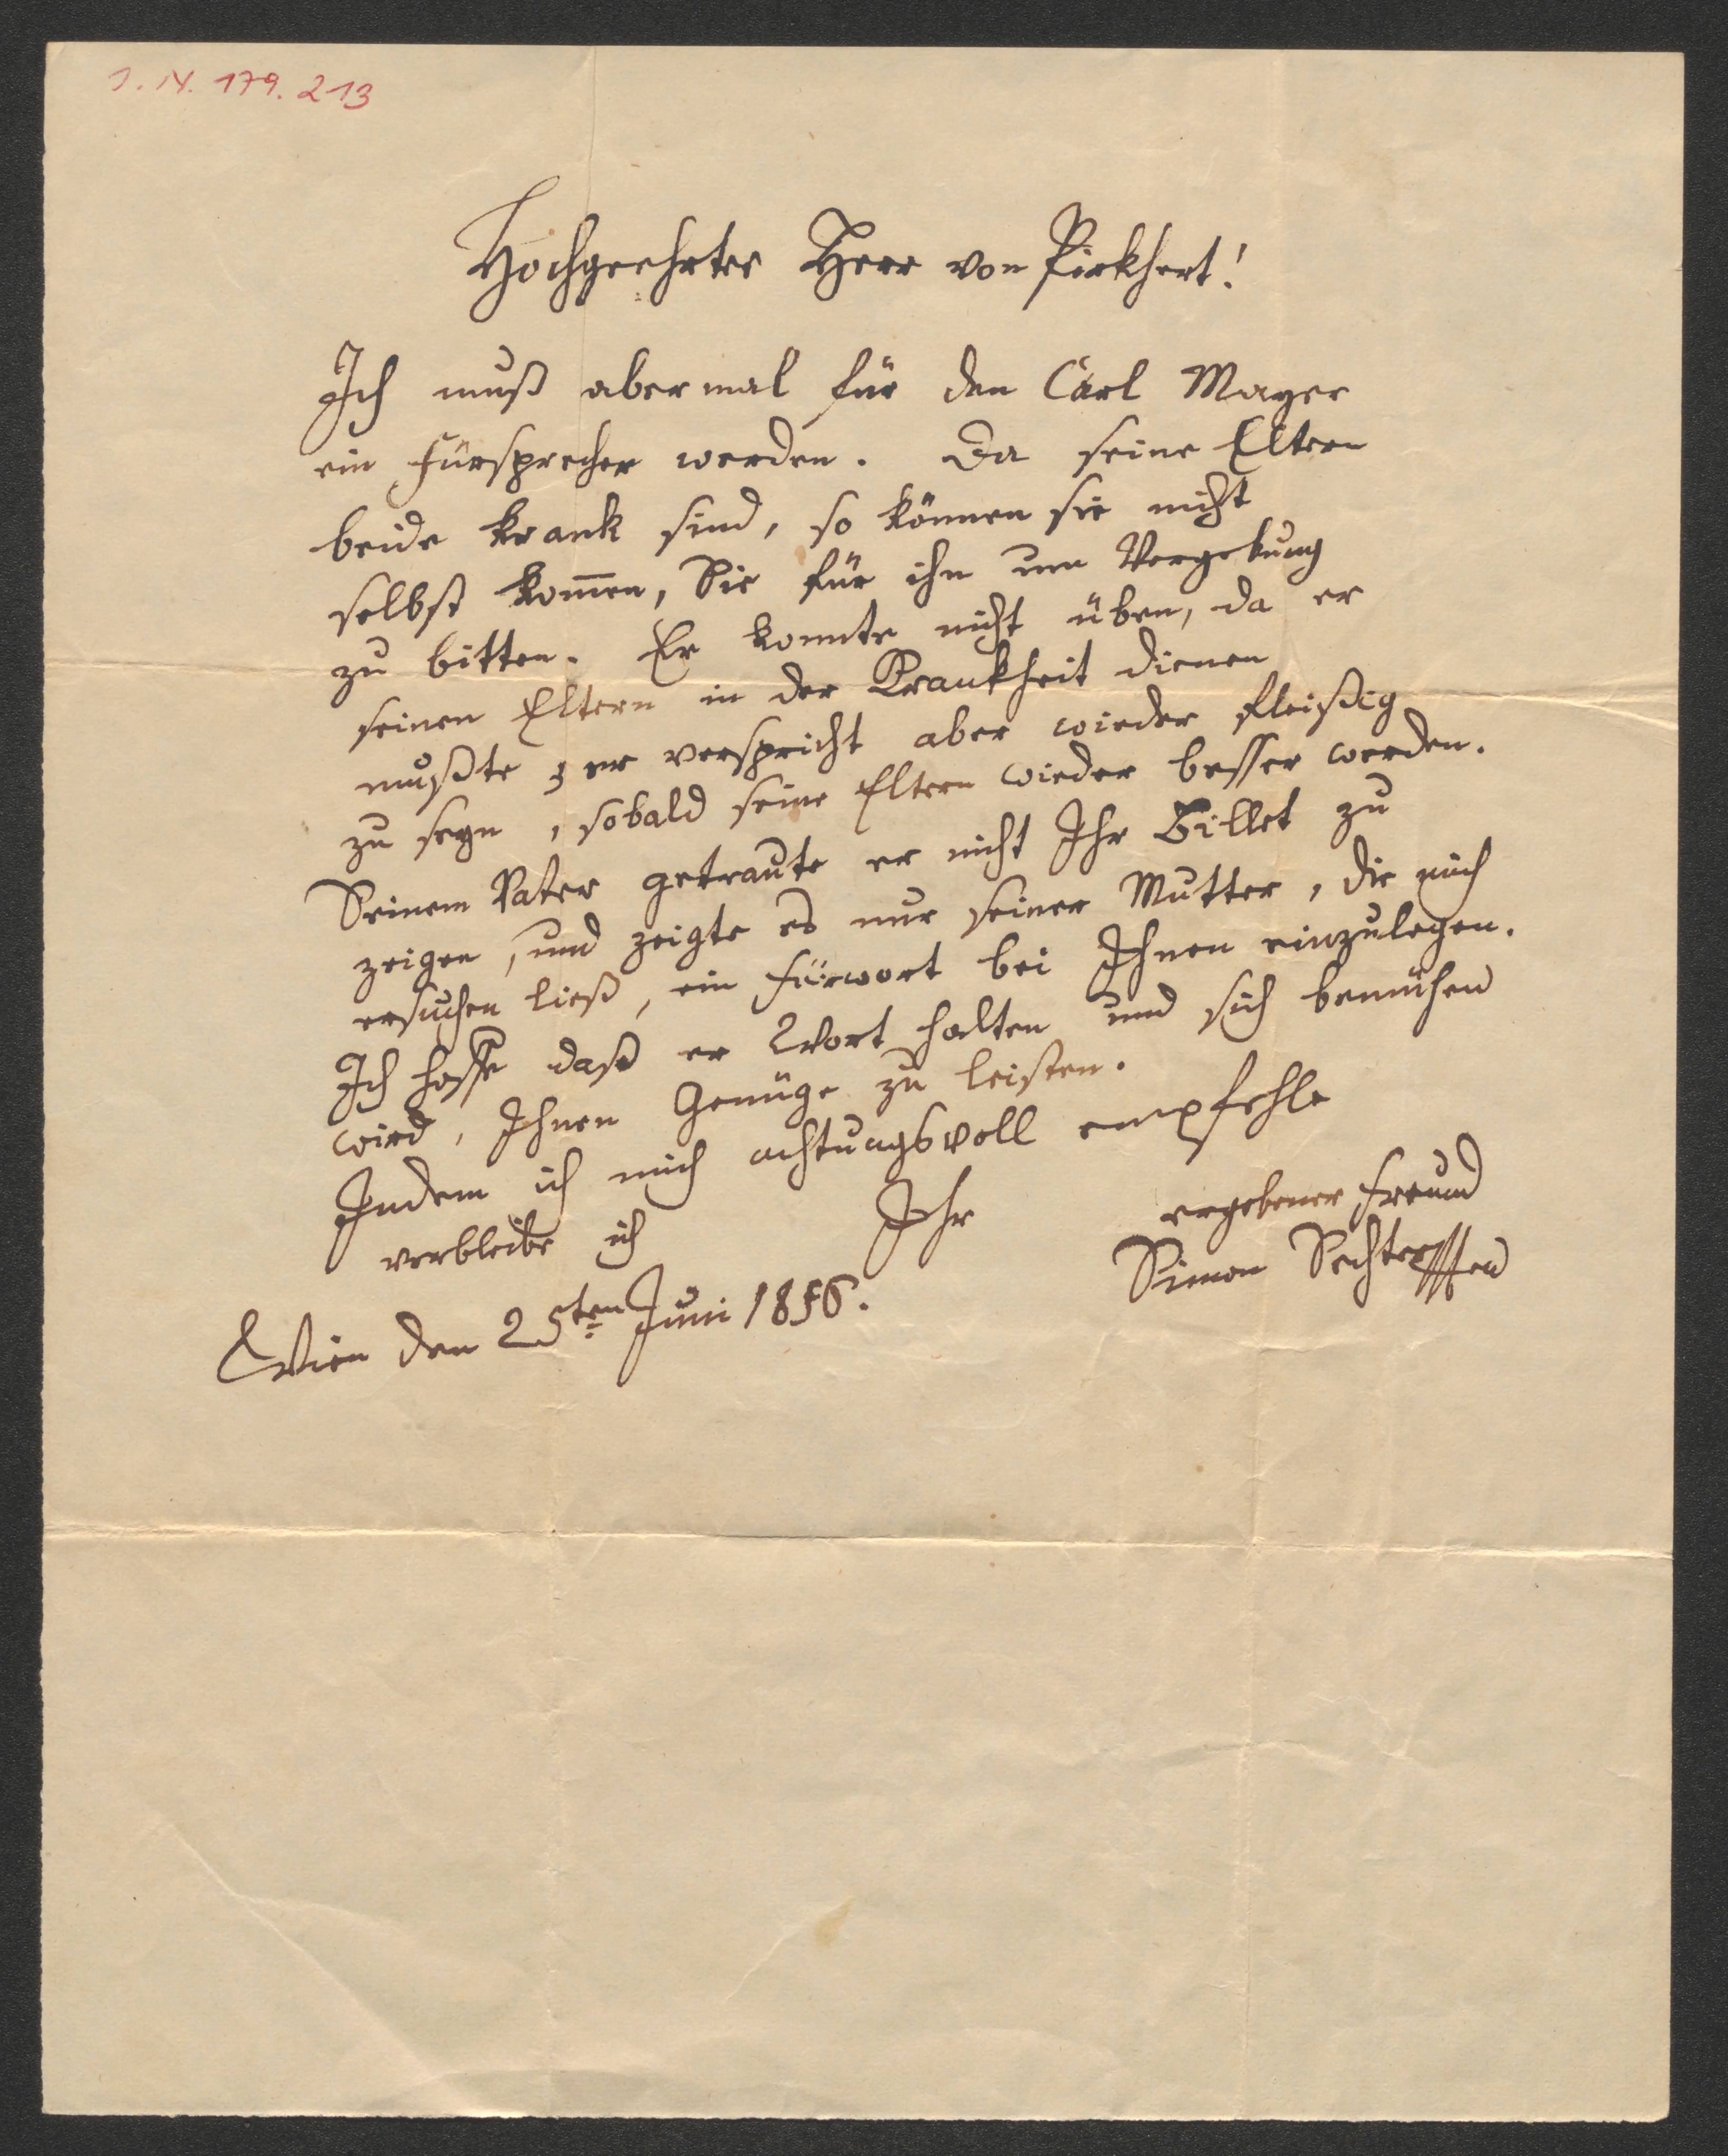 I. N. 179.213
Hochgeehrter Herr von Pirkhert!
Ich muß abermal für den Carl Mayer
ein Fürsprecher werden. Da seine Eltern
beide krank sind, so können sie nicht
selbst kom̄en, Sie für ihn um Vergebung
zu bitten. Er konnte nicht üben, da er
seinen Eltern in der Krankheit dienen
mußte; er verspricht aber wieder fleißig
zu seyn, sobald seine Eltern wieder besser werden.
Seinem Vater getraute er nicht Ihr Billet zu
zeigen, und zeigte es nur seiner Mutter, die mich
ersuchen ließ, ein Fürwort bei Ihnen einzulegen.
Ich hoffe daß er Wort halten und sich bemühen
wird, Ihnen Genüge zu leisten.
Indem ich mich achtungsvoll empfehle
verbleibe ich Ihr ergebener Freund
Simon Sechter
Wien den 25ten Juni 1856.